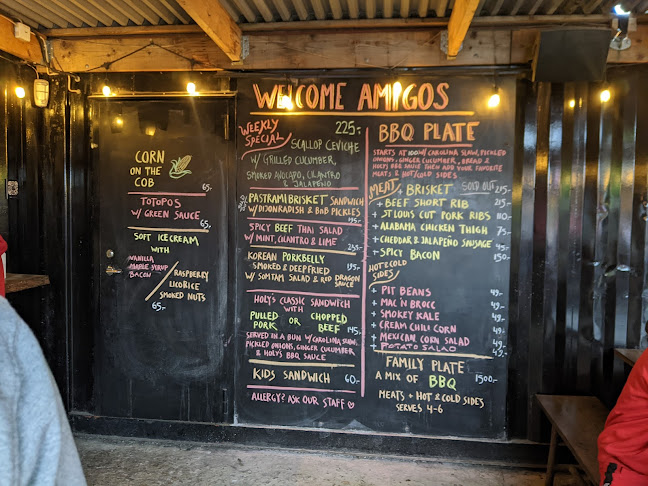 WELCOME AMIGOS
CORN
ON THE
COB
65.-
TOTOPOS
W/ GREEN SAUCE
65.-
SOFT ICECREAM
WITH
VANILLA
MAPLE SYRUP
BACON
RASPBERRY
LICORICE
SMOKED NUTS
65.-
WEEKLY
SPECIAL
225.-
SCALLOP CEVICHE
W/ GRILLED CUCUMBER,
SMOKED AVOCADO, CILANTRO
& JALAPEÑO
PASTRAMI BRISKET SANDWICH
W/ DIJONRADISH & BNB PICKLES
195.-
SPICY BEEF THAI SALAD
W/ MINT, CILANTRO & LIME
KOREAN PORKBELLY
SMOKED & DEEPFRIED
195.-
W/ SOMTAM SALAD & RED DRAGON
SAUCE
HOLY'S CLASSIC SANDWICH
WITH
PULLED OR CHOPPED
PORK BEEF 145.-
SERVED IN A BUN W/ CAROLINA SLAW,
PICKLED ONIONS, GINGER CUCUMBER
& HOLY'S BBQ SAUCE
KIDS SANDWICH 60.-
ALLERGY? ASK OUR STAFF
BBQ PLATE
STARTS AT 100 W/ CAROLINA SLAW, PICKLED
ONIONS, GINGER CUCUMBER, BREAD &
HOLY'S BBQ SAUCE THEN ADD YOUR FAVORITE
MEATS & HOT/COLD SIDES
MEAT/ + BRISKET SOLD OUT 215.-
+ BEEF SHORT RIB 215.-
+ ST LOUIS CUT PORK RIBS 110.-
+ ALABAMA CHICKEN THIGH 75.-
+ CHEDDAR & JALAPEÑO SAUSAGE 45.-
+ SPICY BACON 150.-
HOT & COLD
SIDES/
+ PIT BEANS 49.-
+ MAC 'N BROCC 49.-
+ SMOKEY KALE 49.-
+ CREAM CHILI CORN 49.-
+ MEXICAN CORN SALAD 49.-
+ POTATO SALAD 49.-
FAMILY PLATE
A MIX OF BBQ 1500.-
MEATS + HOT & COLD SIDES
SERVES 4-6